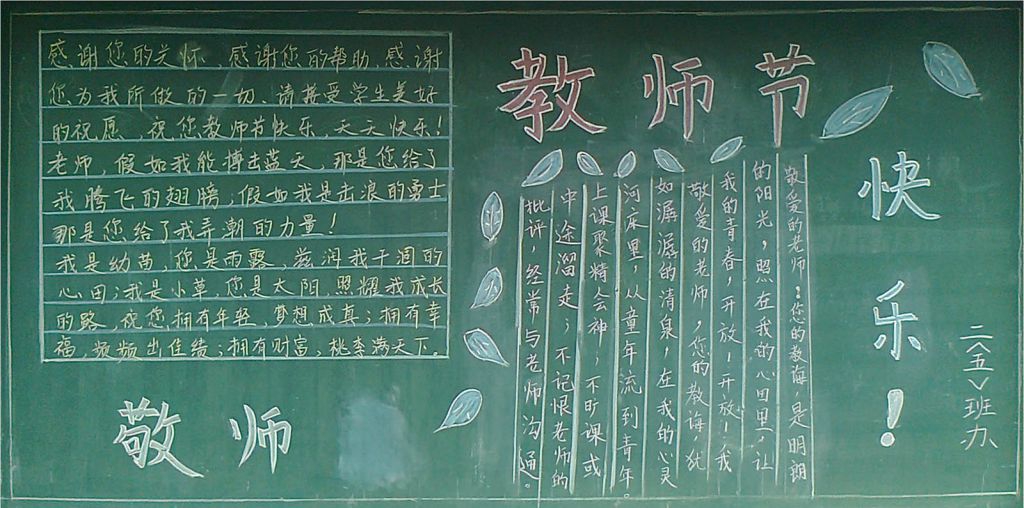 教师节
快乐！
感谢您的关怀、感谢您的帮助、感谢
您为我所做的一切、请接受学生美好
的祝愿，祝您教师节快乐，天天快乐！
老师，假如我能搏击蓝天，那是您给了
我腾飞的翅膀；假如我是击浪的勇士
那是您给了我弄潮的力量！
我是幼苗，您是雨露，滋润我干涸的
心田；我是小草，您是太阳，照耀我成长
的路，祝您，拥有年轻，梦想成真；拥有幸
福，频频出佳绩；拥有财富，桃李满天下。
敬师
敬爱的老师！您的教诲，是明朗
的阳光，照在我的心田里，让
我的青春，开放！开放！我
敬爱的老师，您的教诲，犹
如潺潺的清泉，在我的心灵
河床里，从童年流到青年。
上课聚精会神；不旷课或
中途溜走；不记恨老师的
批评，经常与老师沟通。
二八五班办